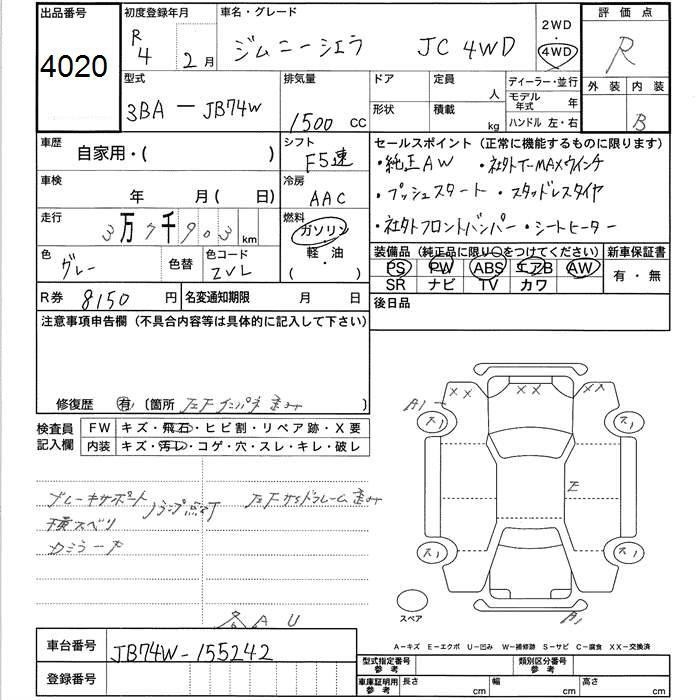 出品番号
4020
初度登録年月
R
4 2月
車名・グレード
ジムニーシエラ JC 4WD
2WD
・
4WD
評価点
R
外装 内装
B
型式
3BA - JB74W
排気量
1500 CC
ドア
形状
定員
人
積載
kg
ディーラー・並行
モデル年式 年
ハンドル 左・右
車歴
自家用・( )
シフト
F5速
車検
年 月( 日)
冷房
AAC
走行
3万7千903 km
燃料
ガソリン
軽・油
・( )
色
グレー
色替
色コード
ZVL
R券 8150 円
名変通知期限 月 日
セールスポイント(正常に機能するものに限ります)
・純正AW ・社外T-MAXウインチ
・プッシュスタート ・スタッドレスタイヤ
・社外フロントバンパー ・シートヒーター
装備品(純正品に限り○をつけてください)
PS PW ABS エアB AW
SR ナビ TV カワ
新車保証書
有・無
後日品
注意事項申告欄(不具合内容等は具体的に記入して下さい)
修復歴 有 〔箇所 )
検査員
記入欄
FW キズ・飛石・ヒビ割・リペア跡・X要
内装 キズ・汚レ・コゲ・穴・スレ・キレ・破レ
ブレーキサポート ランプ点灯
横スベリ
カミラード
各 A U
XX XX XX
A1
ス1 ス1
E
ス1 ス1
A1
スペア
A-キズ E-エクボ U-凹み W-補修跡 S-サビ C-腐食 XX-交換済
車台番号
JB74W-155242
登録番号
型式指定番号
参考
類別区分番号
参考
車庫証明用
参考
長さ cm 幅 cm 高さ cm